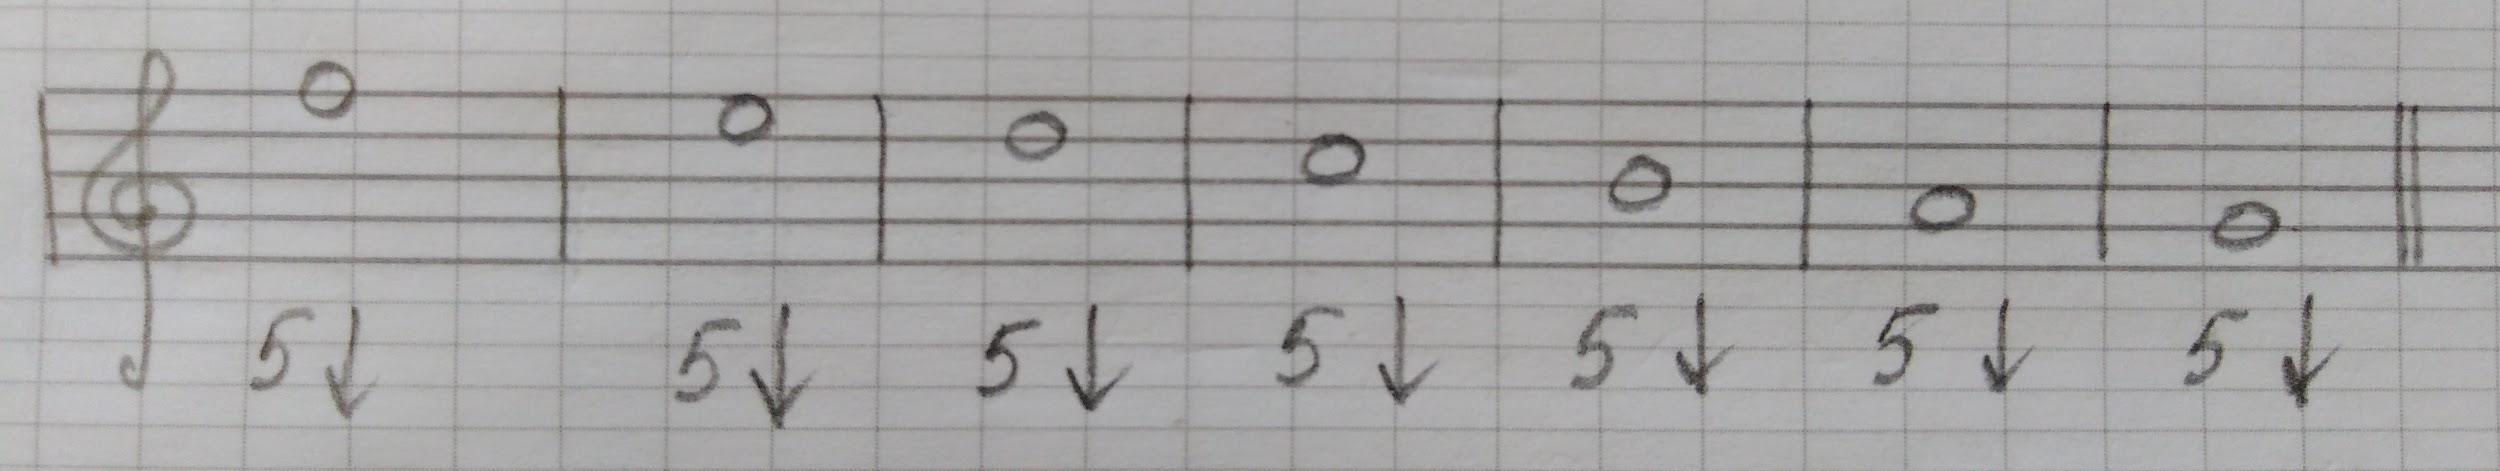 5↓ 5↓ 5↓ 5↓ 5↓ 5↓ 5↓